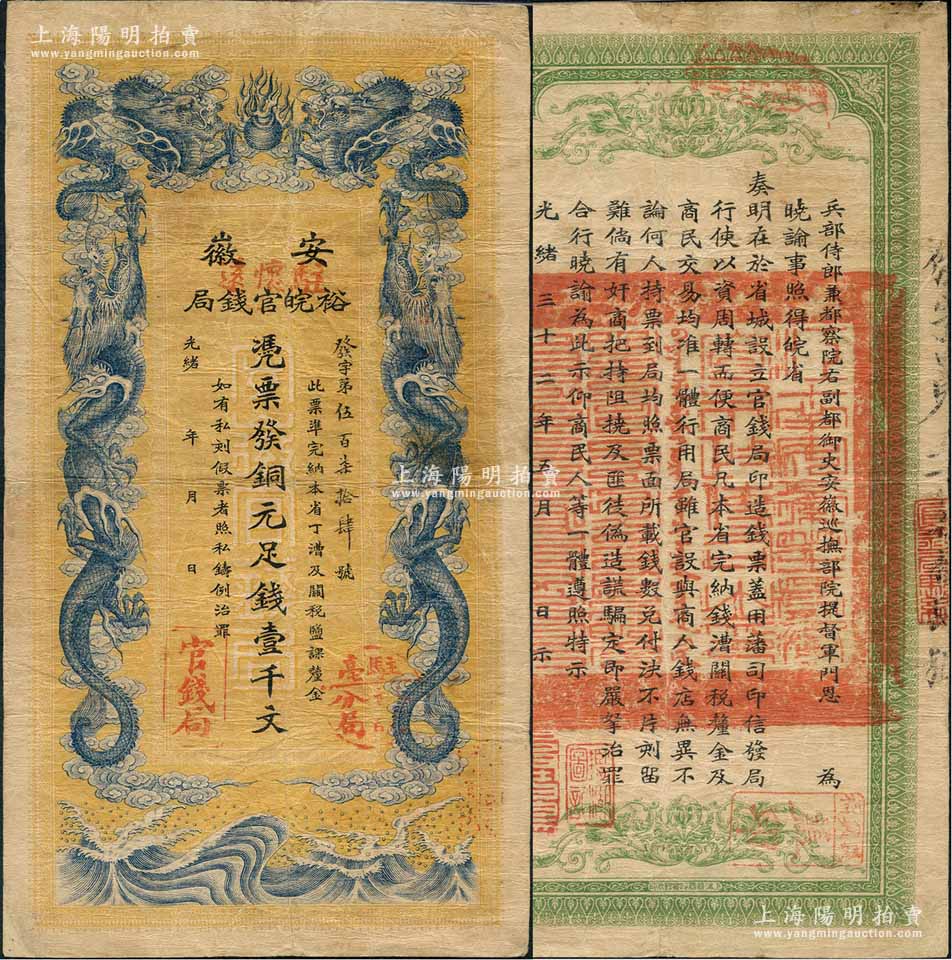 上海陽明拍賣
www.yangmingauction.com
安徽
裕皖官錢局
發字第伍百柒拾肆號
此票準完納本省丁漕及關稅鹽課釐金
憑票發銅元足錢壹千文
如有私刻假票者照私鑄例治罪
光緒 年 月 日
官錢局
亳分局
上海陽明拍賣
www.yangmingauction.com
兵部侍郎兼都察院右副都御史安徽巡撫部院提督軍門恩 為
曉諭事照得皖省
奏明在於省城設立官錢局印造錢票蓋用藩司印信發局
行使以資周轉而便商民凡本省完納錢漕關稅釐金及
商民交易均准一體行用局雖官設與商人錢店無異不
論何人持票到局均照票面所載錢數兌付決不片刻留
難倘有奸商把持阻撓及匪徒偽造謊騙定即嚴拏治罪
合行曉諭為此示仰商民人等一體遵照特示
光緒三十二年五月 日示
上海陽明拍賣
www.yangmingauction.com